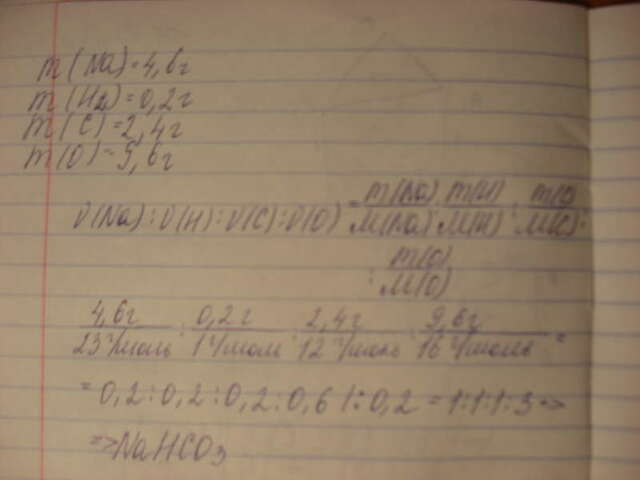 m(Na)=4,6г
m(H₂)=0,2г
m(C)=2,4г
m(O)=9,6г
ν(Na):ν(H):ν(C):ν(O)=m(Na)/M(Na):m(H)/M(H):m(C)/M(C):
:m(O)/M(O)
4,6г/23г/моль:0,2г/1г/моль:2,4г/12г/моль:9,6г/16г/моль=
=0,2:0,2:0,2:0,6 |:0,2=1:1:1:3=>
=>NaHCO₃